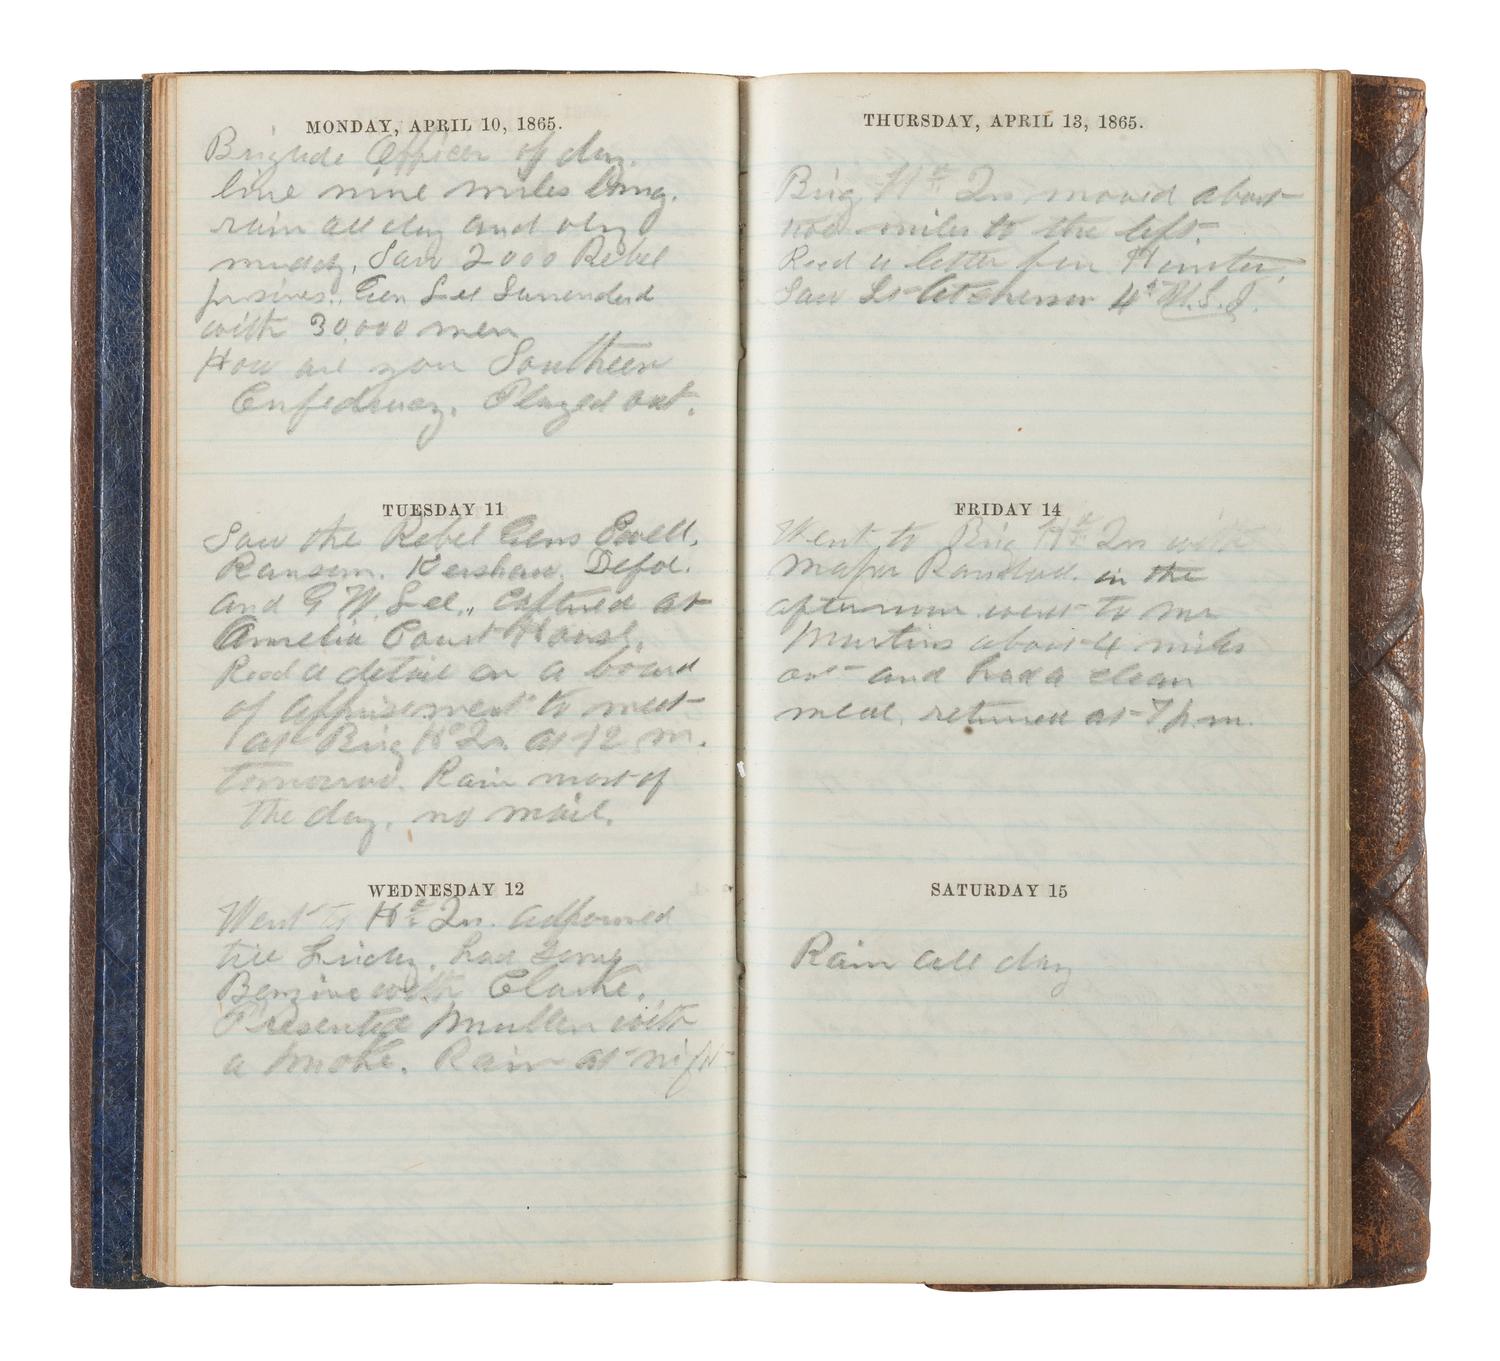 MONDAY, APRIL 10, 1865.
Brigade Officer of day.
line nine miles long.
rain all day and very
muddy. Saw 2000 Rebel
prisners. Gen Lee Surrenderd
with 30,000 men
How are you Southern
Confedracy. Played out.
TUESDAY 11
Saw the Rebel Gens Ewell,
Ransom. Kershaw. Defoe.
and G W Lee., Captured at
Amelia Court House.
Recd a detail on a board
of to meet
at Brig Hd Qrs at 12 m.
tomorrow. Rain most of
the day. no mail.
WEDNESDAY 12
Went to Hd Qrs. adjourned
till Friday. had some
Benzine with Clarke.
Presented Mullen with
a smoke. Rain at night
THURSDAY, APRIL 13, 1865.
Brig Hd Qrs moved about
two miles to the left.
Recd a letter from
Saw Lt 4th U.S.I.
FRIDAY 14
Went to Brig Hd Qrs with
Major in the
afternoon went to Mr
Martins about 4 miles
out and had a clean
meal. returned at 7 p.m.
SATURDAY 15
Rain all day